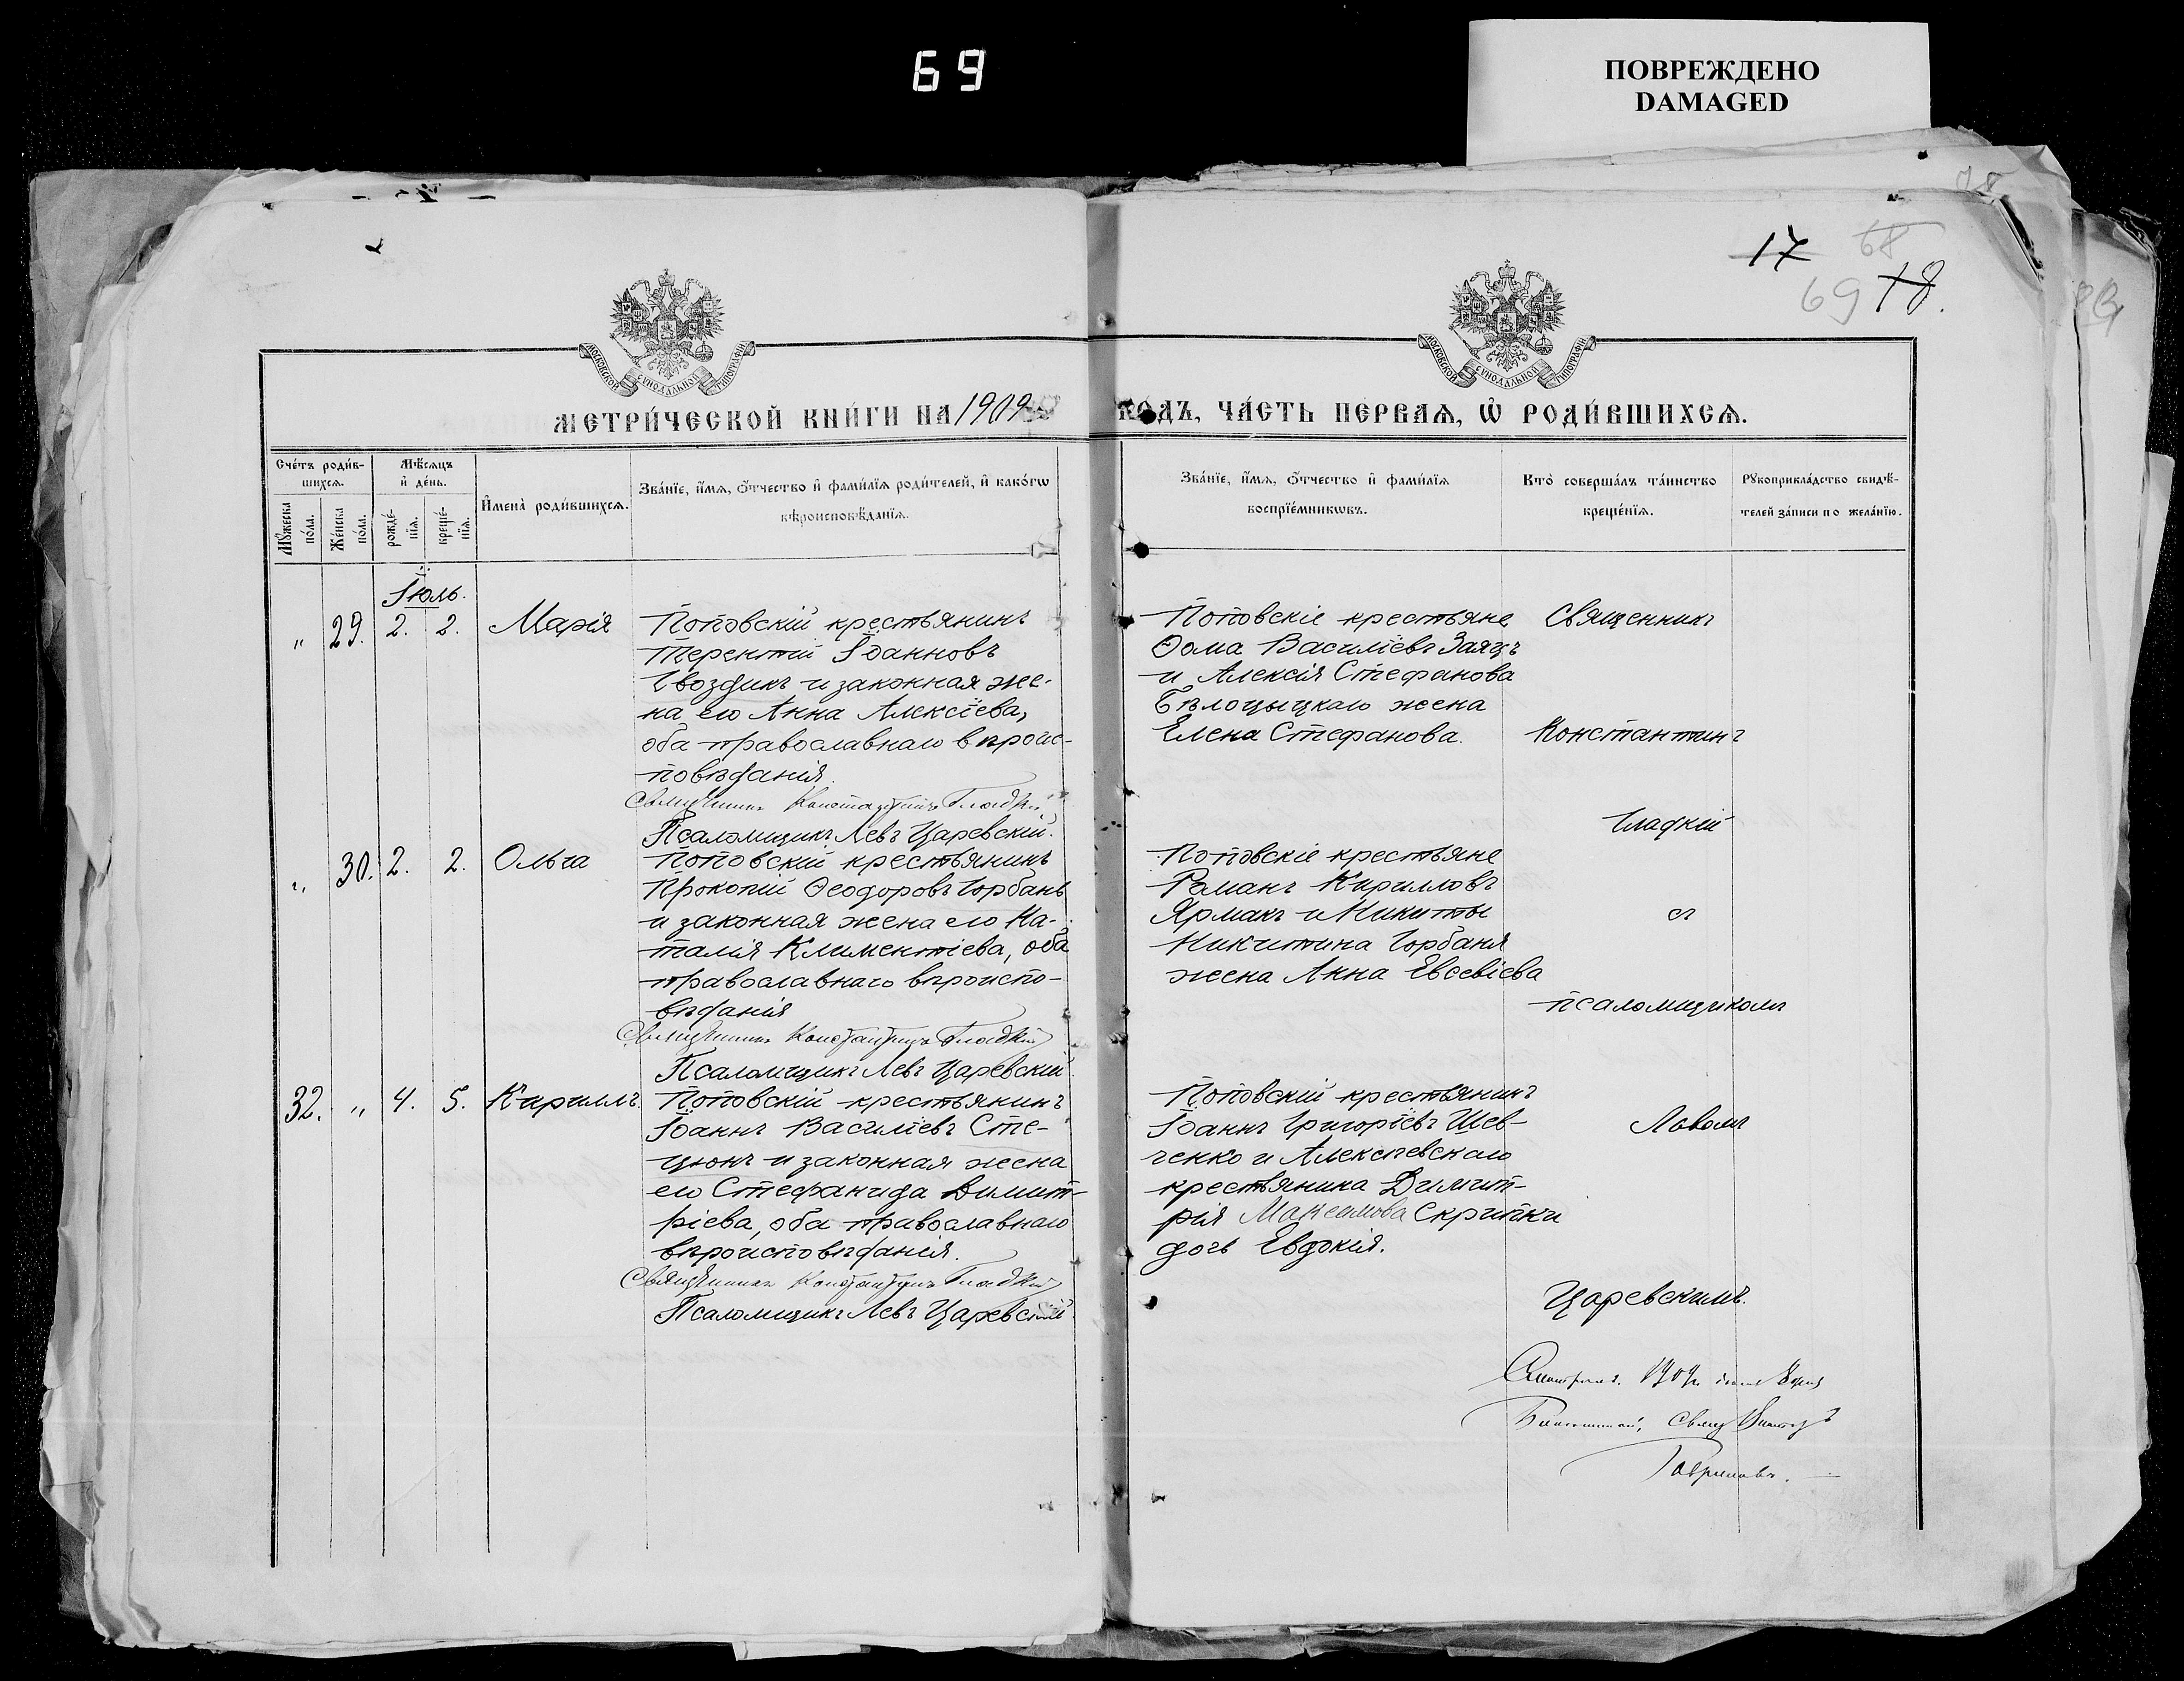 69
ПОВРЕЖДЕНО
DAMAGED
17 68
69 18.
МОСКОВСКОЙ СѴНОДАЛЬНОЙ ТИПОГРАФІИ
МОСКОВСКОЙ СѴНОДАЛЬНОЙ ТИПОГРАФІИ
МЕТРИ́ЧЕСКОЙ КНИ́ГИ НА 1909
ГОДЪ, ЧА́СТЬ ПЕ́РВАѦ, Ѡ҆ РОДИ́ВШИХСѦ.
Сче́тъ роди́в-
шихсѧ.
Мꙋ́жеска по́ла.
Же́нска по́ла.
Мѣ́сѧцъ
и҆ де́нь.
рожде́-
нїѧ.
креще́-
нїѧ.
И҆мена̀ роди́вшихсѧ.
Зва́нїе, и҆́мѧ, ѻ҆́тчество и҆ фами́лїѧ роди́телей, и҆ како́гѡ
вѣроисповѣ́данїѧ.
Зва́нїе, и҆́мѧ, ѻ҆́тчество и҆ фами́лїѧ
воспрїе́мникѡвъ.
Кто̀ соверша́лъ та́инство
креще́нїѧ.
Рꙋкоприкла́дство свидѣ́-
телей за́писи по жела́нїю.
Іюль.
" 29. 2. 2. Марія
Поповскій крестьянинъ
Терентій Іоанновъ
Гвоздикъ и законная же-
на его Анна Алексіева,
оба православнаго вѣроис-
повѣданія.
Священникъ Константинъ Гладкій
Псаломщикъ Левъ Царевскій.
Поповскіе крестьяне
Ѳома Василіевъ Заяцъ
и Алексія Стефанова
Бѣлоцыцкаго жена
Елена Стефанова.
Священникъ
Константинъ
Гладкій
" 30. 2. 2. Ольга
Поповскій крестьянинъ
Прокопій Ѳеодоровъ Горбань
и законная жена его На-
талія Климентіева, оба
православнаго вѣроиспо-
вѣданія
Священникъ Константинъ Гладкій
Псаломщикъ Левъ Царевскій
Поповскіе крестьяне
Романъ Кирилловъ
Ярмакъ и Никиты
Никитина Горбаня
жена Анна Евсевіева
съ
псаломщикомъ
32. " 4. 5. Кириллъ.
Поповскій крестьянинъ
Іоаннъ Василіевъ Сте-
цюкъ и законная жена
его Стефанида Димит-
ріева, оба православнаго
вѣроисповѣданія.
Священникъ Константинъ Гладкій
Псаломщикъ Левъ Царевскій
Поповскій крестьянинъ
Іоаннъ Григоріевъ Шев-
ченко и Алексѣевскаго
крестьянина Димит-
рія Максимова Скрипки
дочь Евдокія.
Львомъ
Царевскимъ.
Смотрѣлъ. 1909